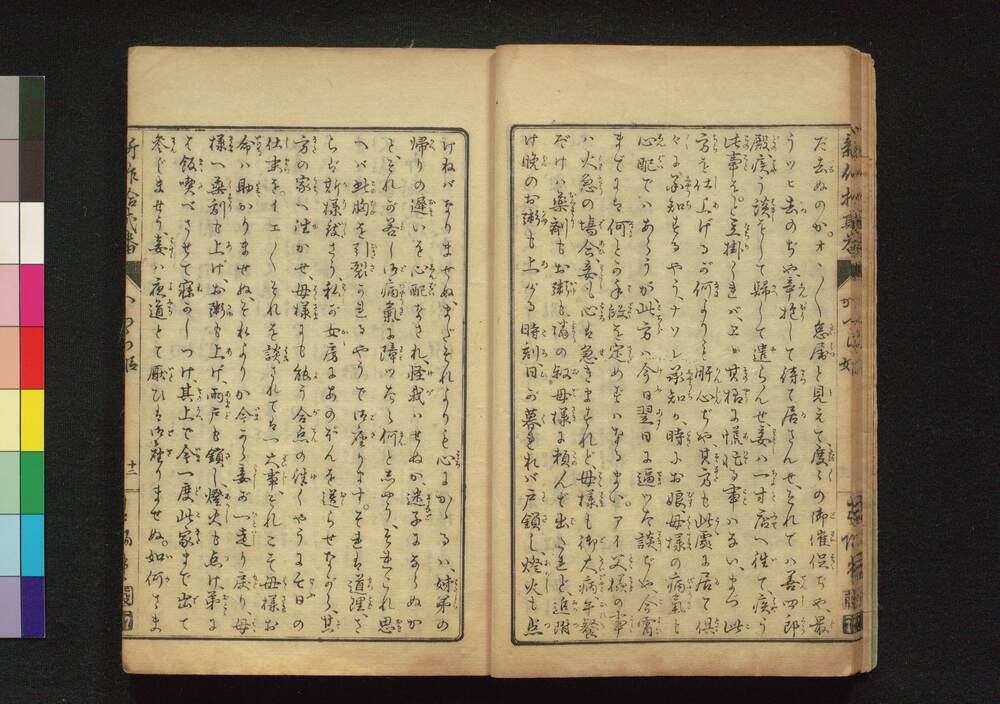 だ去ぬのか。オヽ〳〵怠屋と見えて、度々の御催促ぢや、最
うツヒ去のぢや、辛抱して待て居さんせ、それでハ善四郎
殿、疾う談をして歸して遣らんせ、妾ハ一寸店へ往て、疾う
此事をと立掛くれバ、ヱヽ其樣に慌忙る事ハない、まづ此
方を仕上げるが何よりも肝心ぢや、其方も此處に居て俱
々に承知するやう、ナソレ承知か、時にお娘、母樣の病氣も
心配でハあらうが、此方ハ今日翌日に逼ツた談ぢや、今宵
までにも何とか手段を定めずハなるまい。アイ父樣の事
ハ火急の場合、妾も心も急きますれど、母樣も御大病、午餐
だけハ藥劑もお粥も隣の叔母樣に頼んで出ましたれど、追附
け晩のお粥も上がる時刻、日が暮れれバ戸鎖し、燈火も點
けねバなりませぬ、まだそれよりも心にかゝるハ、姉弟の
帰りの遲いを心配され、怪我ハせぬか、迷子にならぬか
と、それが苦し、御病氣に障ツたら何と思う、それこれ思
へバ此胸を引裂かれるやうで御座ります。それも道理、さ
らバ斯樣致さう、私が女房にあのぼんを送らせながら、其
方の家へ往かせ、母樣にも能う合点の往くやうに今日の
仕末を。イエ〳〵それを談されてハ一大事、それこそ母樣お
命ハ助かりませぬ、それよりか今から妾が一走り戻り、母
樣へ藥劑も上げ、お粥も上げ、雨戸も鎖し、燈火も点け、弟に
も飯喫べさせて寐かしつけ、其上で今一度此家まで出て
参じませう、妾ハ夜道とて厭ひも御座りませぬ。如何さま
新作合式番
十二